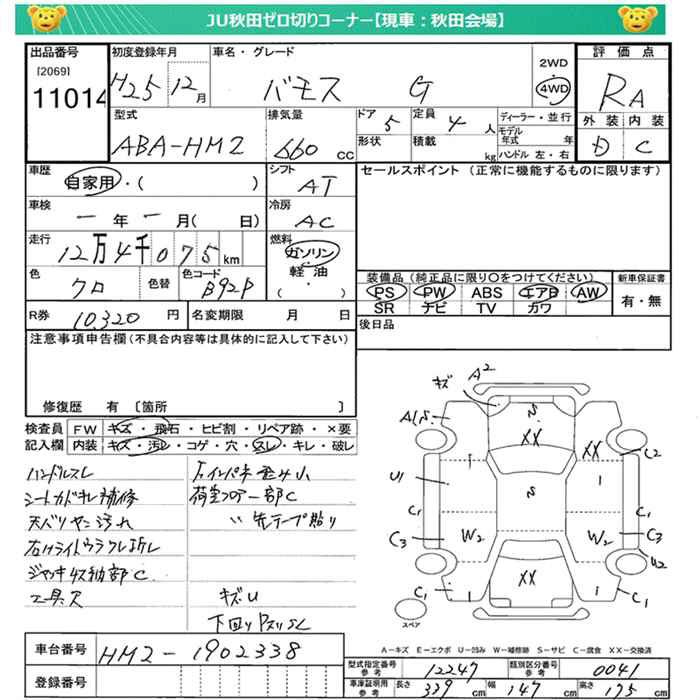 JU秋田ゼロ切りコーナー【現車：秋田会場】
出品番号 [2069] 11014
初度登録年月 H25年12月
車名・グレード バモス G
2WD 4WD
評価点 RA
外装 D 内装 C
型式 ABA-HM2
排気量 660 CC
ドア 5 形状
定員 4 人 積載 kg
ディーラー・並行
モデル年式 年
ハンドル 左・右
車歴 自家用・( )
シフト AT
セールスポイント（正常に機能するものに限ります）
車検 ー年ー月( 日)
冷房 AC
走行 12万4千075km
燃料 ガソリン 軽油・( )
色 クロ 色替
色コード B92P
装備品（純正品に限り○をつけてください）
PS PW ABS エアB AW
SR ナビ TV カワ
新車保証書 有・無
R券 10,320 円
名変期限 月 日
後日品
注意事項申告欄（不具合内容等は具体的に記入して下さい）
修復歴 有 〔箇所 〕
検査員記入欄
FW キズ・飛石・ヒビ割・リペア跡・×要
内装 キズ・汚レ・コゲ・穴・スレ・キレ・破レ
ハンドルスレ
シートカドキレ補修
天バリヤニ汚れ
ジャッキ収納部C
工具欠
荷室フロアー部C
〃 先テープ貼り
キズU
下回りサビ
キズ A2
S
XX
XX
C2
U1
S
C1
C1
C3
W2
W2
C3
U2
XX
C1
C1
スペア
A－キズ E－エクボ U－凹み W－補修跡 S－サビ C－腐食 XX－交換済
車台番号 HM2-1902338
登録番号
型式指定番号 参考 12247
類別区分番号 参考 0041
車庫証明用 参考 長さ 339 cm 幅 147 cm 高さ 175 cm